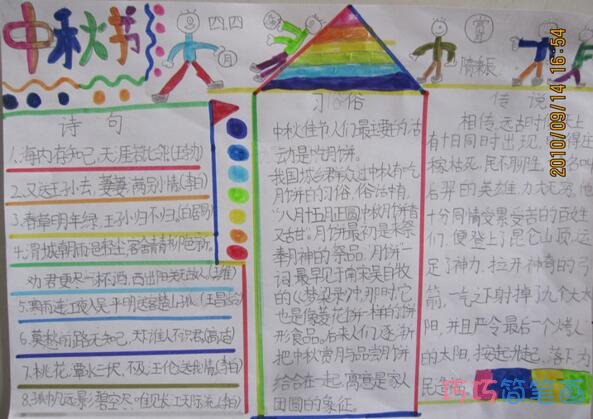 中秋节
四四
月
宵
2010/09/14 16:54
诗句
1.海内存知己,天涯若比邻(王勃)
2.又送王孙去,萋萋满别情(白)
3.春草明年绿,王子归不归。
4.渭城朝雨浥轻尘,客舍青青柳色新。
劝君更尽一杯酒,西出阳关无故人(王维)
5.寒雨连江夜入吴,平明送客楚山孤(王昌龄)
6.莫愁前路无知己,天下谁人不识君(高适)
7.桃花潭水三千尺,不及王伦送我情(李白)
8.孤帆远影碧空尽,唯见长江天际流(李白)
习俗
中秋佳节人们最主要的活
动是吃月饼。
我国城乡群众过中秋有吃
月饼的习俗,俗话中有
“八月十五月正圆中秋月饼香
又甜”。月饼最初是来祭
奉月神的祭品,“月饼”一
词,最早见于南宋吴自牧
的《梦梁录》中,那时,它
也是像菱花饼一样的饼
形食品。后来人们逐渐
把中秋赏月与品尝月饼
结合在一起,寓意是家人
团圆的象征。
传说
相传,远古时候天上
有十日同时出现,得庄
稼枯死,民不聊生,名叫
后羿的英雄,力大无穷,他
十分同情受苦的百姓
们,便登上了昆仑山顶,运
足了神力,拉开神奇的弓
箭,一气之下射掉了九个太
阳,并且严令最后一个
的太阳,按时起,落下为
民造
巧巧简笔画